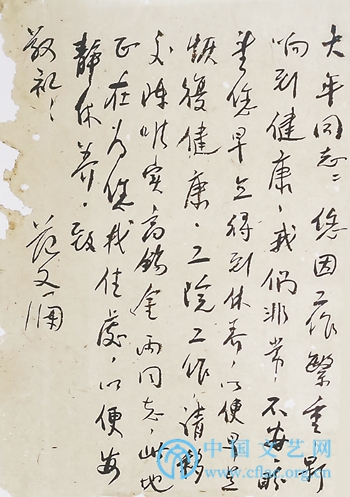 大年同志：您因工作繁重影
响到健康，我们非常不安，
望您早得到休养，以便早
恢復健康。工作，请移
交陈惟实、高两同志，此地
正在为您找住处，以便安
静休养。致
敬礼！
范文澜
中国文艺网
www.cflac.org.cn